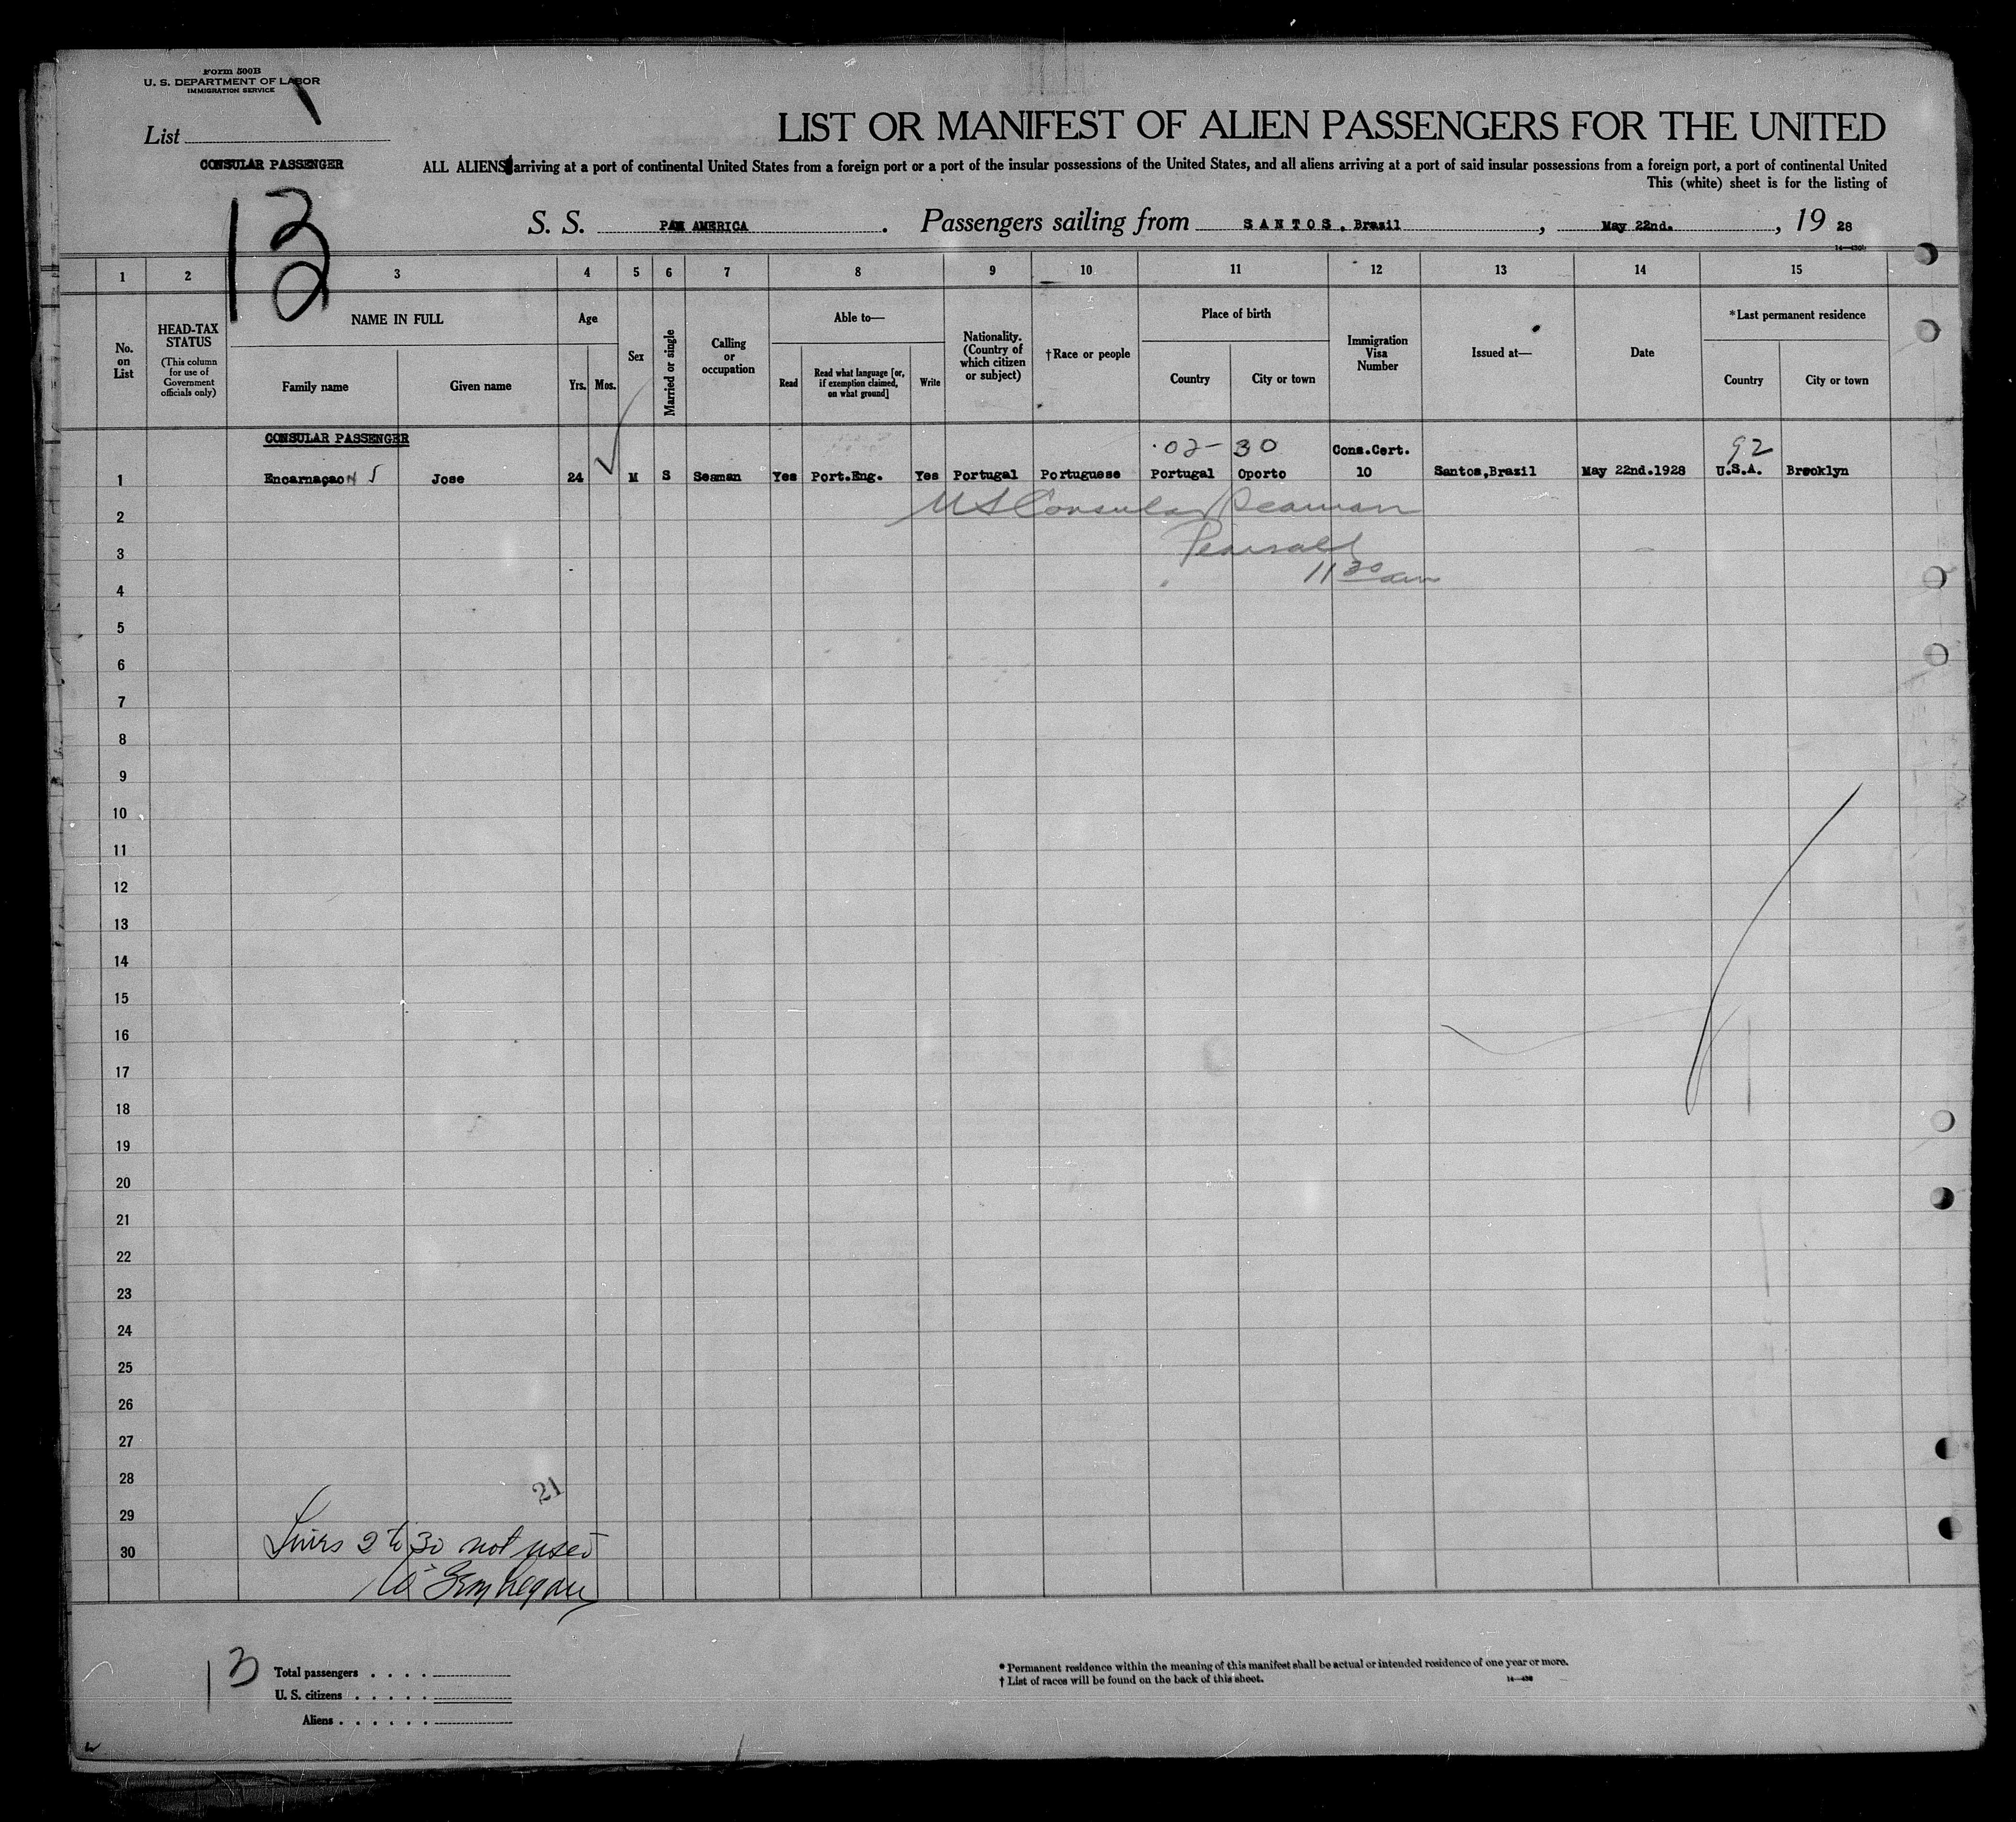 Form 500B
U. S. DEPARTMENT OF LABOR
IMMIGRATION SERVICE
List
CONSULAR PASSENGER
LIST OR MANIFEST OF ALIEN PASSENGERS FOR THE UNITED
ALL ALIENS arriving at a port of continental United States from a foreign port or a port of the insular possessions of the United States, and all aliens arriving at a port of said insular possessions from a foreign port, a port of continental United
This (white) sheet is for the listing of
S. S. PAN AMERICA. Passengers sailing from SANTOS, Brazil, May 22nd., 19 28
1 2 3 4 5 6 7 8 9 10 11 12 13 14 15
No. on List
HEAD-TAX STATUS
(This column for use of Government officials only)
NAME IN FULL
Family name
Given name
Age
Yrs. Mos.
Sex
Married or single
Calling or occupation
Able to—
Read
Read what language [or, if exemption claimed, on what ground]
Write
Nationality. (Country of which citizen or subject)
†Race or people
Place of birth
Country
City or town
Immigration Visa Number
Issued at—
Date
*Last permanent residence
Country
City or town
CONSULAR PASSENGER
02- 30
Cons.Cert.
92
1 Encarnaçao Jose 24 M S Seaman Yes Port.Eng. Yes Portugal Portuguese Portugal Oporto 10 Santos,Brazil May 22nd.1928 U.S.A. Brooklyn
2 US Consular Seaman
3
11 30 am
4
5
6
7
8
9
10
11
12
13
14
15
16
17
18
19
20
21
22
23
24
25
26
27
28
21
29
30
Lines 2 to 30 not used
13
Total passengers . . . .
U. S. citizens . . . . .
Aliens . . . . . .
* Permanent residence within the meaning of this manifest shall be actual or intended residence of one year or more.
† List of races will be found on the back of this sheet.